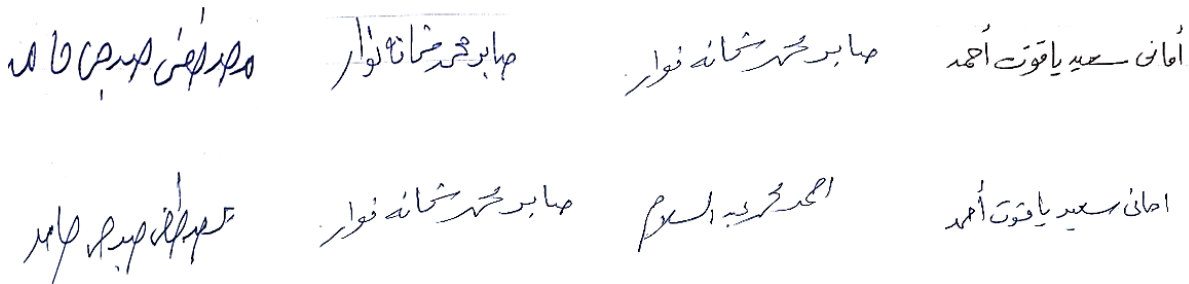 أمانى سعيد ياقوت أحمد صابر محمد شحاته نوار صابر محمد شحاته نوار مصطفى صبحى حامد
امانى سعيد ياقوت أحمد احمد محمد عبد السلام صابر محمد شحاته نوار مصطفى صبحى حامد